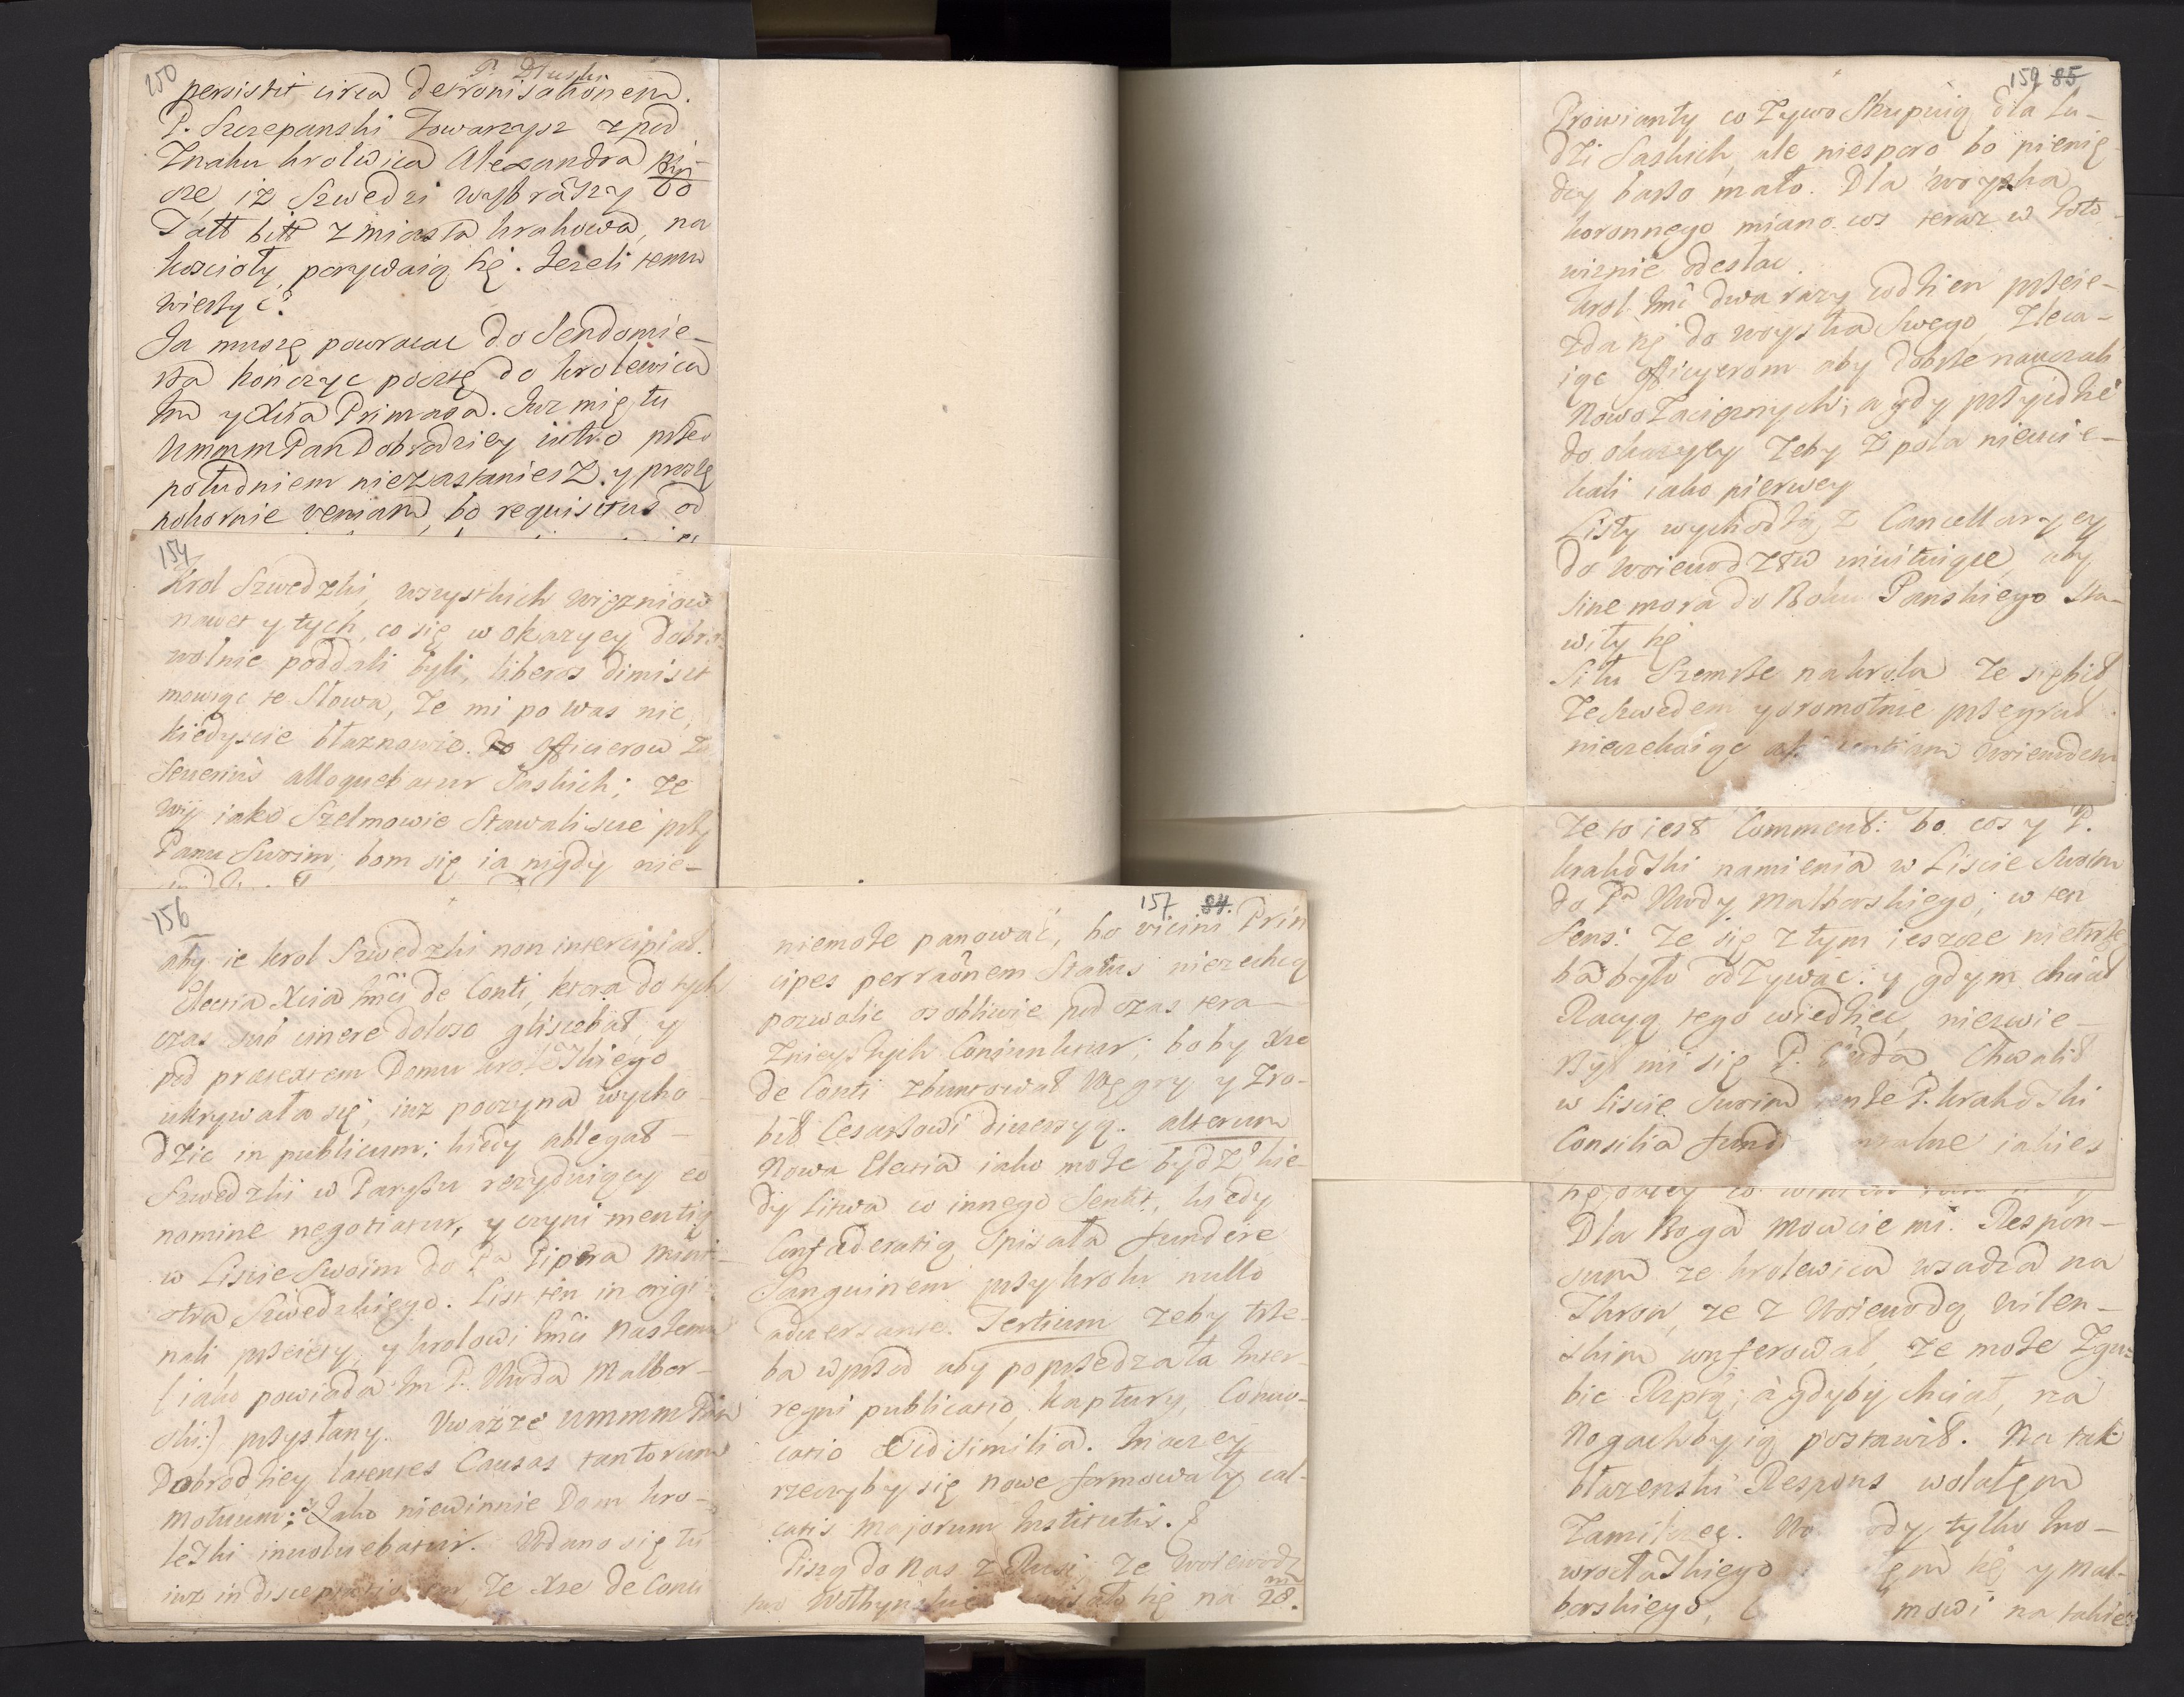 150
P. Dłuski
persistit circa detronisationem.
P. Szczepanski Towarzysz zpod
Znaku krolewica Alexandra
sze iż Szwedzi wybrászy 60
Tall bitt z miasta krakowa, na
koscioły porywaią się. Jezeli temu
wierzyć?
Ja muszę powracac do Sendomie-
rza konczyc pocztę do krolewica
Im y Xcia Primasa. Juz mię tu
Ummm Pan Dobrodziey iutro przed
południem niezastaniesz y proszę
pokornie veniam, bo requisitus od
154
Krol Szwedzki, wszystkich więzniow
nawet y tych, co się w okazyey dobro-
wolnie poddali byli, liberos dimisit
mowiąc te słowa, ze mi po was nic,
kiedyscie błaznowie. Do Officierow za
seuerius alloquebatur Saskich; ze
wy iako Szelmowie stawaliscie przy
Panu swoim, bom się ia nigdy nie-
156
aby ie krol Szwedzki non intercipiat.
Electia Xcia Imci de Conti, ktora do tych
czas sub cinere doloso gliscebat, y
pod praetextem Domu krolewskiego
ukrywała się, iuz poczyna wycho-
dzic in publicum: kiedy ablegat
Szwedzki w Paryżu rezyduiący eo
nomine negotiatur, y czyni mentią
w Liscie swoim do Pa Pipera mini-
stra Szwedzkiego. List ten in origi-
nali przeięty, y krolowi Imci naszemu
(iako powiada Im P. Wwda Malbor-
ski:) przysłany. Uwazze Ummm Pan
Dobrodziey latentes Causas tantorum
motuum: Jako niewinnie Dom kro-
lewski inuoluebatur. Udano się tu
iuz in disceptationem, ze Xze de Conti
157 84.
niemoże panować, bo vicini Prin
cipes per raonem Status niezechcą
pozwolic osobliwie pod czas tera-
znieyszych Coniunktur; boby Xze
de Conti zbuntował Węgry y zro-
bił Cesarzowi diuersyą. alterum
Nowa Electia iako może bydz? kie-
dy Litwa co innego sentit, kiedy
Confæderatią spisała fundere
Sanguinem przy krolu nullo
aduersante. Tertium zeby trze-
ba wprzod aby poprzedzała Inter-
regni publicatio, kaptury, Conuo-
catio &cet: similia. Inaczey
rzeczyby się nowe formowały cal-
catis majorum Institutis.
Piszą do nas z Rusi, ze Woiewodz
two Wołhynskie się na 28.
159 85
Prowianty co zywo skupuią dla lu-
dzi Saskich, ale niesporo bo pienię-
dzy barzo mało. Dla woyska
koronnego miano cos teraz w goto-
wiznie odesłac.
Krol Imc dwa razy codzien przeie-
zda się do woyska swego, zleca-
iąc officyerom aby dobrze nauczali
nowo zacięznych; a gdy przyidzie
do okazyey zeby z pola nieucie-
kali iako pierwey
Listy wychodzą z Cancellaryey
do woiewodztw inuituiące, aby
sine mora do Boku Panskiego sta-
wiły się
Siłu szemrze na krola ze się bił
ze Szwedem y sromotnie przegrał
nieczekaiąc woiewodzw
Ze to iest Comment: bo cos y P.
krakowski namienia w Liscie swoim
do Pa Wwdy Malborskiego; w ten
sens: Ze się z tym ieszcze nietrze
ba było odzywac: y gdym chciał
Racyą tego wiedziec, niezwie-
rzył mi się P. Wwda. Chwalił
w Liscie swoim tenże P. krakowski
Consilia iakies
Dla Boga mowcie mi. Respon-
sum ze krolewica wsadza na
Thron, ze z Woiewodą wilen-
skim conferował, ze może zgu-
bic Rzptą; à gdyby chciał, na
nogachby ią postawił. Na tak
błazenski Respons wolałem
zamilczec. tylko Ino-
wrocławskiego y Mal-
borskiego, mowi na takie